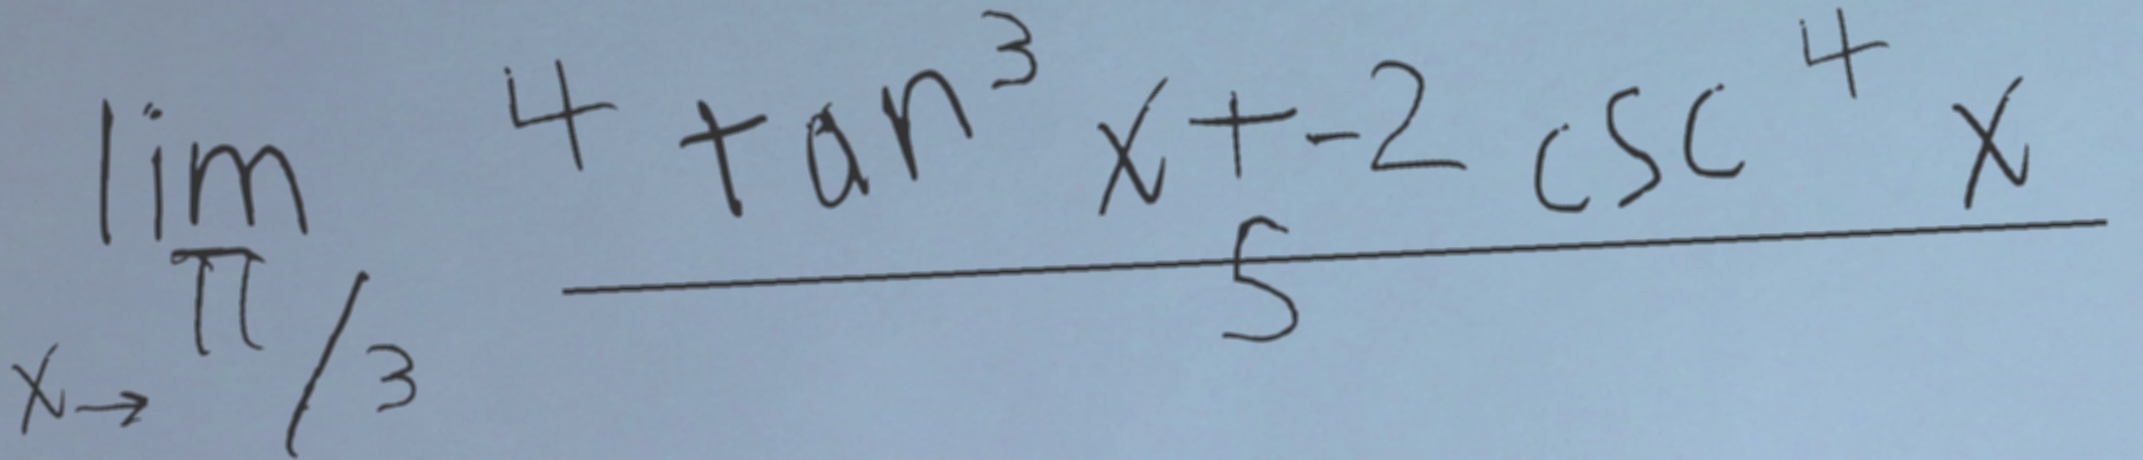 lim x→π/3 (4 tan³ x + -2 csc⁴ x)/5